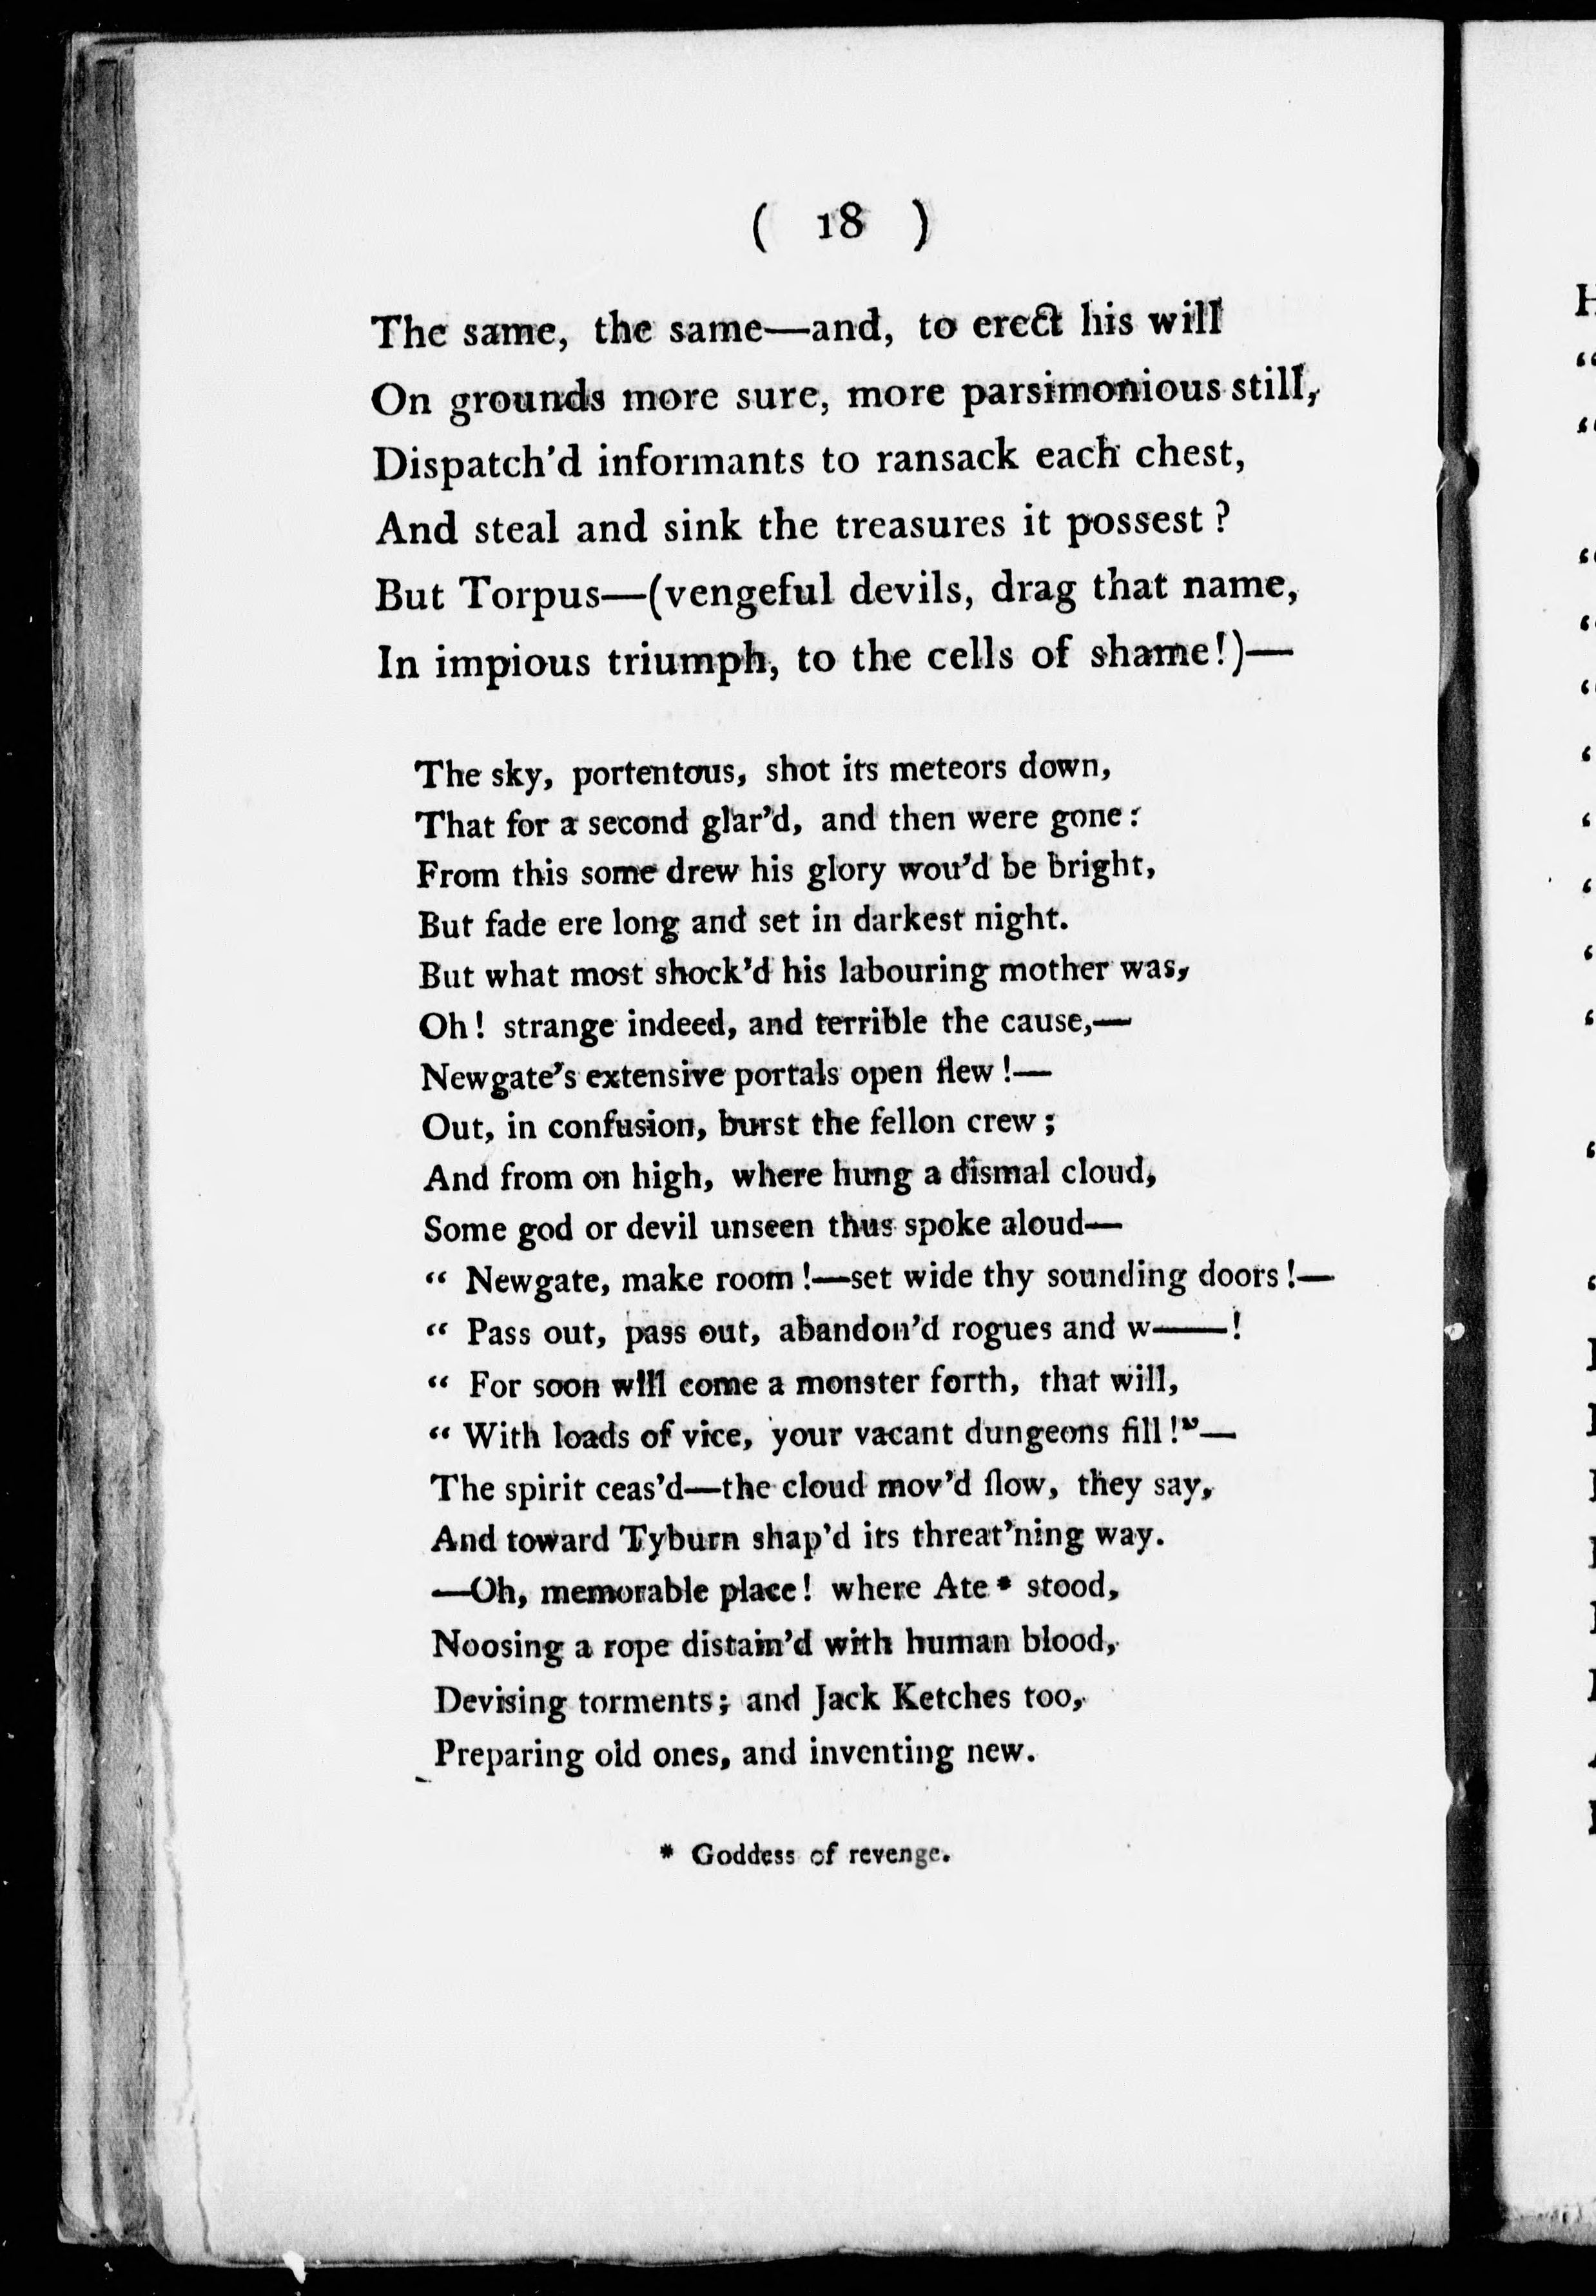 ( 18 )
The same, the same—and, to erect his will
On grounds more sure, more parsimonious still,
Dispatch'd informants to ransack each chest,
And steal and sink the treasures it possest ?
But Torpus—(vengeful devils, drag that name,
In impious triumph, to the cells of shame!)—
The sky, portentous, shot its meteors down,
That for a second glar'd, and then were gone:
From this some drew his glory wou'd be bright,
But fade ere long and set in darkest night.
But what most shock'd his labouring mother was,
Oh! strange indeed, and terrible the cause,—
Newgate's extensive portals open flew !—
Out, in confusion, burst the fellon crew ;
And from on high, where hung a dismal cloud,
Some god or devil unseen thus spoke aloud—
“ Newgate, make room !—set wide thy sounding doors !—
“ Pass out, pass out, abandon'd rogues and w——!
“ For soon will come a monster forth, that will,
“ With loads of vice, your vacant dungeons fill !”—
The spirit ceas'd—the cloud mov'd ſlow, they say,
And toward Tyburn shap'd its threat'ning way.
—Oh, memorable place! where Ate * stood,
Noosing a rope distain'd with human blood,
Devising torments ; and Jack Ketches too,
Preparing old ones, and inventing new.
* Goddess of revenge.